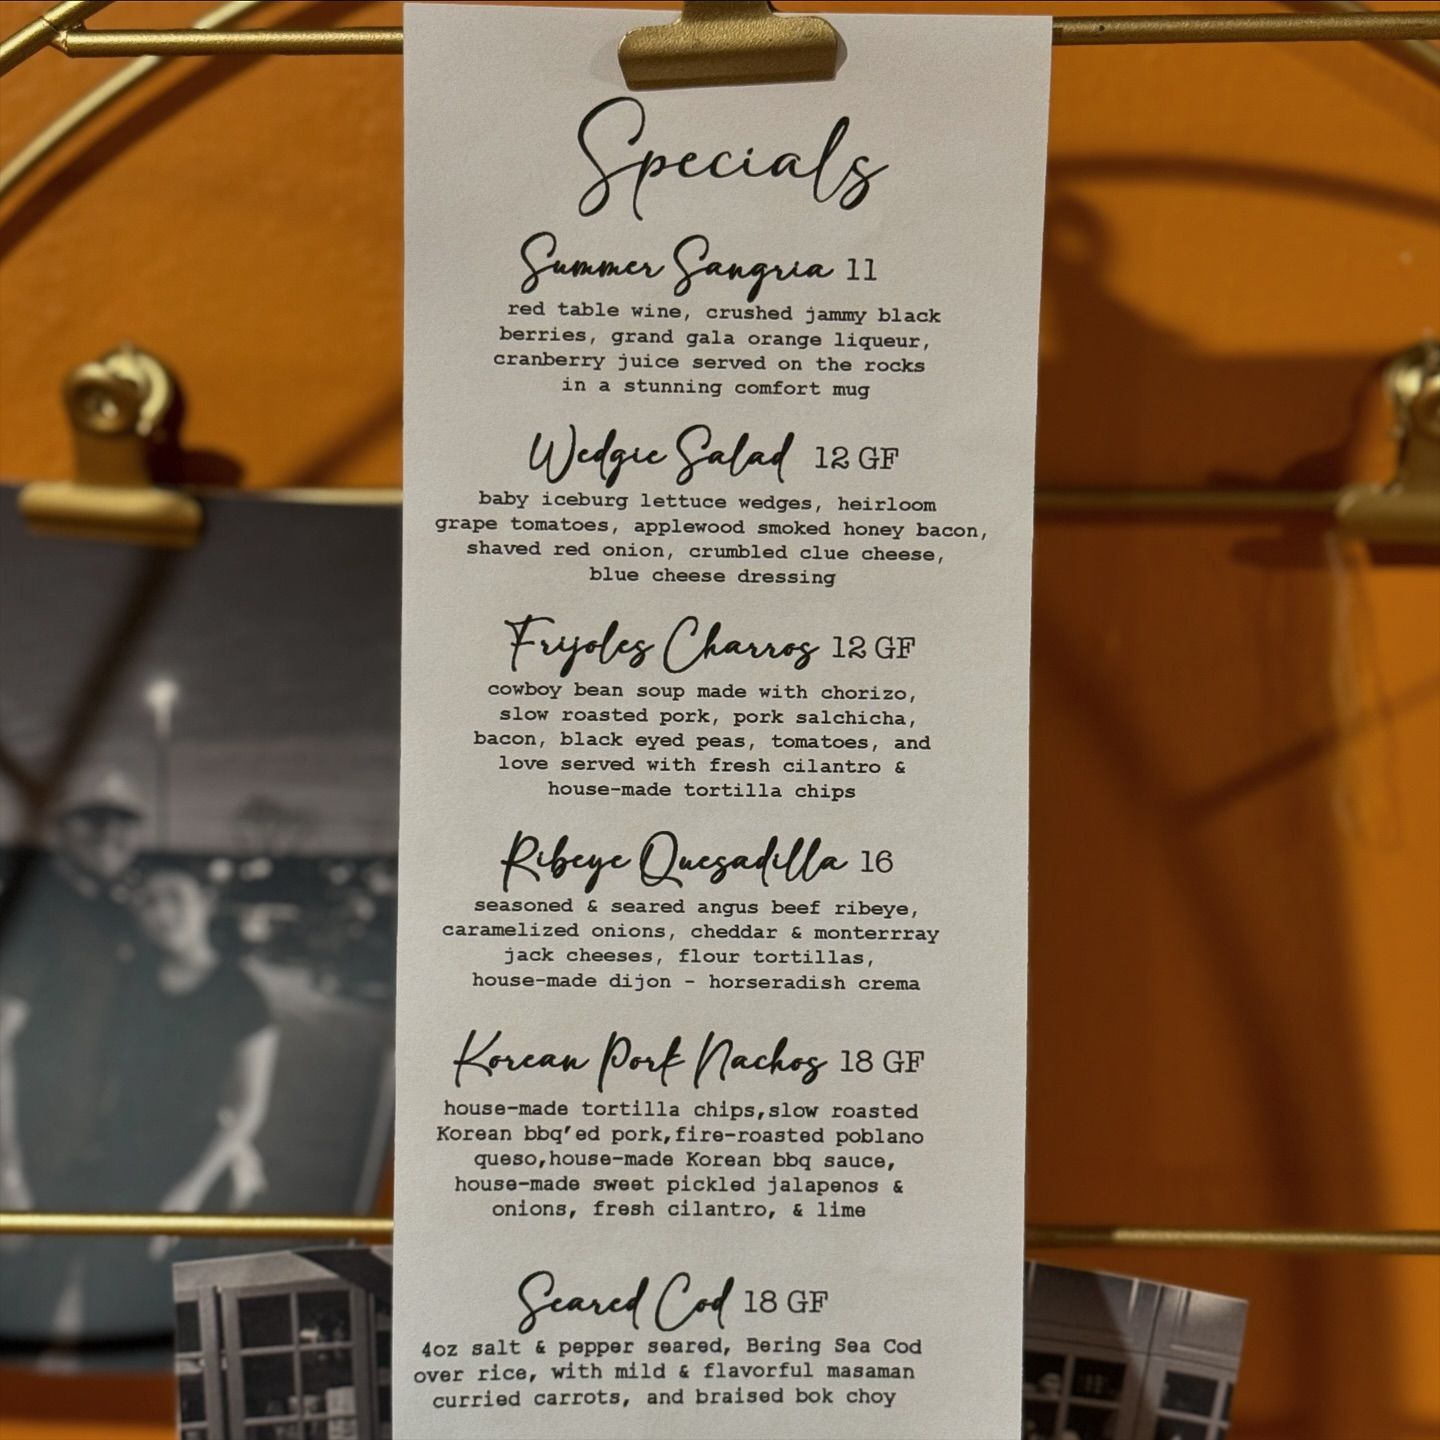 Specials
Summer Sangria 11
red table wine, crushed jammy black
berries, grand gala orange liqueur,
cranberry juice served on the rocks
in a stunning comfort mug
Wedgie Salad 12 GF
baby iceburg lettuce wedges, heirloom
grape tomatoes, applewood smoked honey bacon,
shaved red onion, crumbled clue cheese,
blue cheese dressing
Frijoles Charros 12 GF
cowboy bean soup made with chorizo,
slow roasted pork, pork salchicha,
bacon, black eyed peas, tomatoes, and
love served with fresh cilantro &
house-made tortilla chips
Ribeye Quesadilla 16
seasoned & seared angus beef ribeye,
caramelized onions, cheddar & monterrray
jack cheeses, flour tortillas,
house-made dijon - horseradish crema
Korean Pork Nachos 18 GF
house-made tortilla chips,slow roasted
Korean bbq'ed pork,fire-roasted poblano
queso,house-made Korean bbq sauce,
house-made sweet pickled jalapenos &
onions, fresh cilantro, & lime
Seared Cod 18 GF
4oz salt & pepper seared, Bering Sea Cod
over rice, with mild & flavorful masaman
curried carrots, and braised bok choy